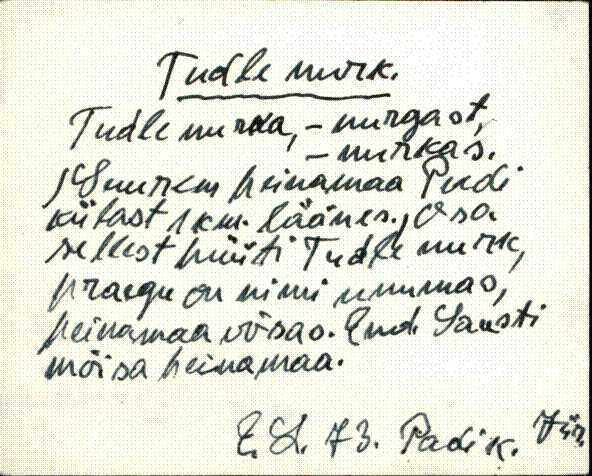 Tudle nurk.
Tudle nurka, - nurgast,
- nurkas.
Suurem heinamaa Pudi
külast 1 km. läänes., Osa
sellest hüüti Tudle nurk,
praegu on nimi unumas,
heinamaa võsas. End. Sausti
mõisa heinamaa.
E. L. 73. Padi k. Jür.